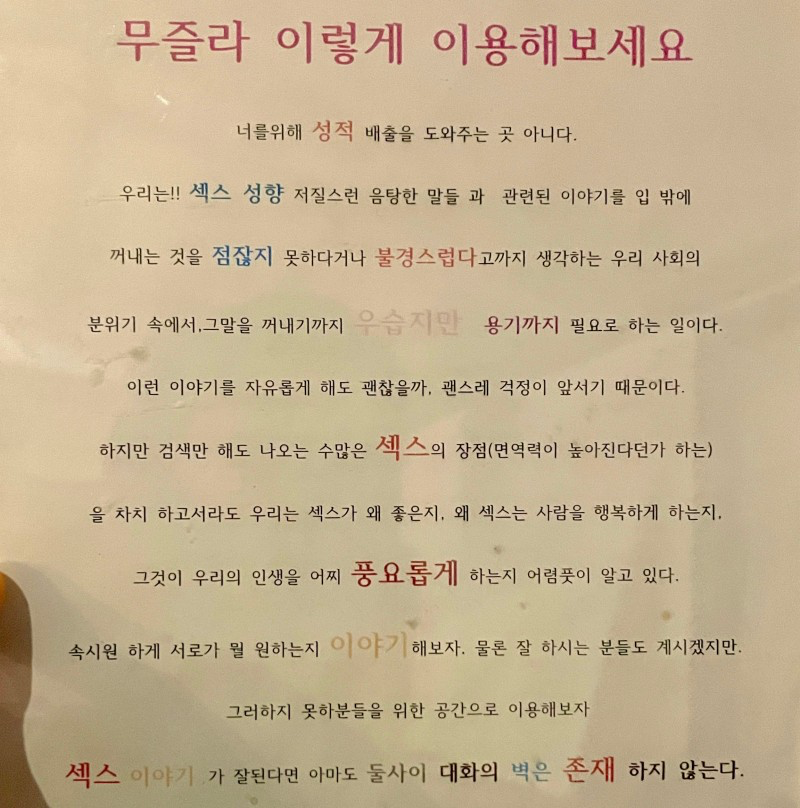 무즐라 이렇게 이용해보세요
너를위해 성적 배출을 도와주는 곳 아니다.
우리는!! 섹스 성향 저질스런 음탕한 말들 과 관련된 이야기를 입 밖에
꺼내는 것을 점잖지 못하다거나 불경스럽다고까지 생각하는 우리 사회의
분위기 속에서,그말을 꺼내기까지 우습지만 용기까지 필요로 하는 일이다.
이런 이야기를 자유롭게 해도 괜찮을까, 괜스레 걱정이 앞서기 때문이다.
하지만 검색만 해도 나오는 수많은 섹스의 장점(면역력이 높아진다던가 하는)
을 차치 하고서라도 우리는 섹스가 왜 좋은지, 왜 섹스는 사람을 행복하게 하는지,
그것이 우리의 인생을 어찌 풍요롭게 하는지 어렴풋이 알고 있다.
속시원 하게 서로가 뭘 원하는지 이야기해보자. 물론 잘 하시는 분들도 계시겠지만.
그러하지 못하분들을 위한 공간으로 이용해보자
섹스 이야기 가 잘된다면 아마도 둘사이 대화의 벽은 존재 하지 않는다.